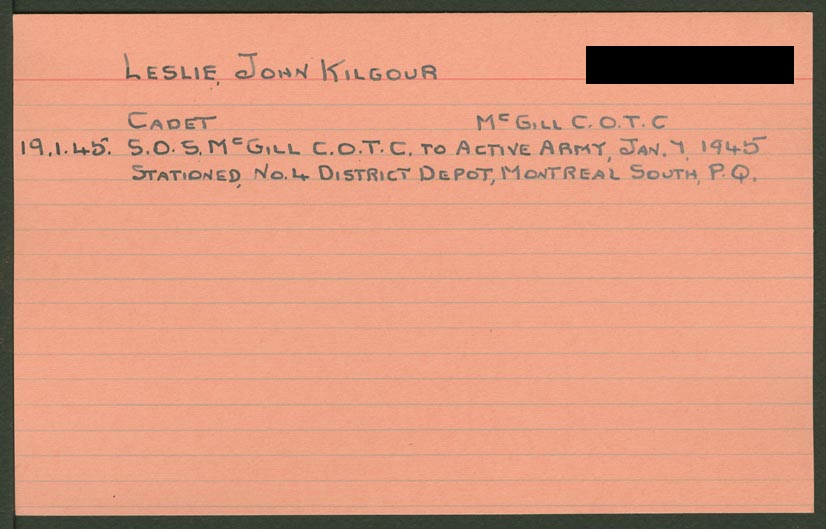 LESLIE, JOHN KILGOUR
CADET McGILL C.O.T.C
19.1.45. S.O.S. McGILL C.O.T.C. TO ACTIVE ARMY, JAN. 7, 1945
STATIONED, NO. 4 DISTRICT DEPOT, MONTREAL SOUTH, P.Q.